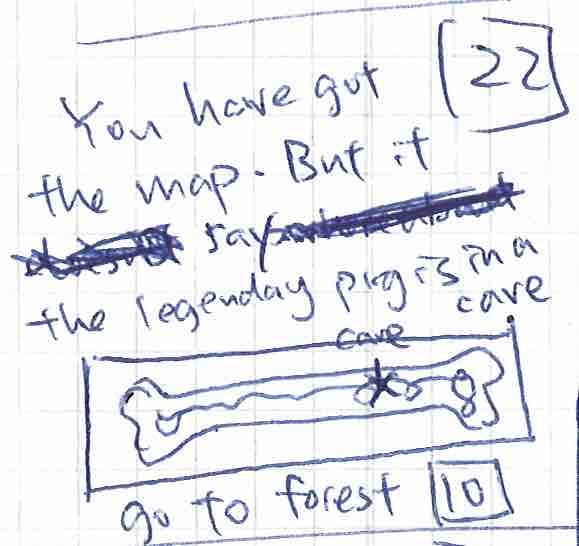 22
You have got
the map. But it
say
the legenday pig is in a
cave
cave
go to forest 10